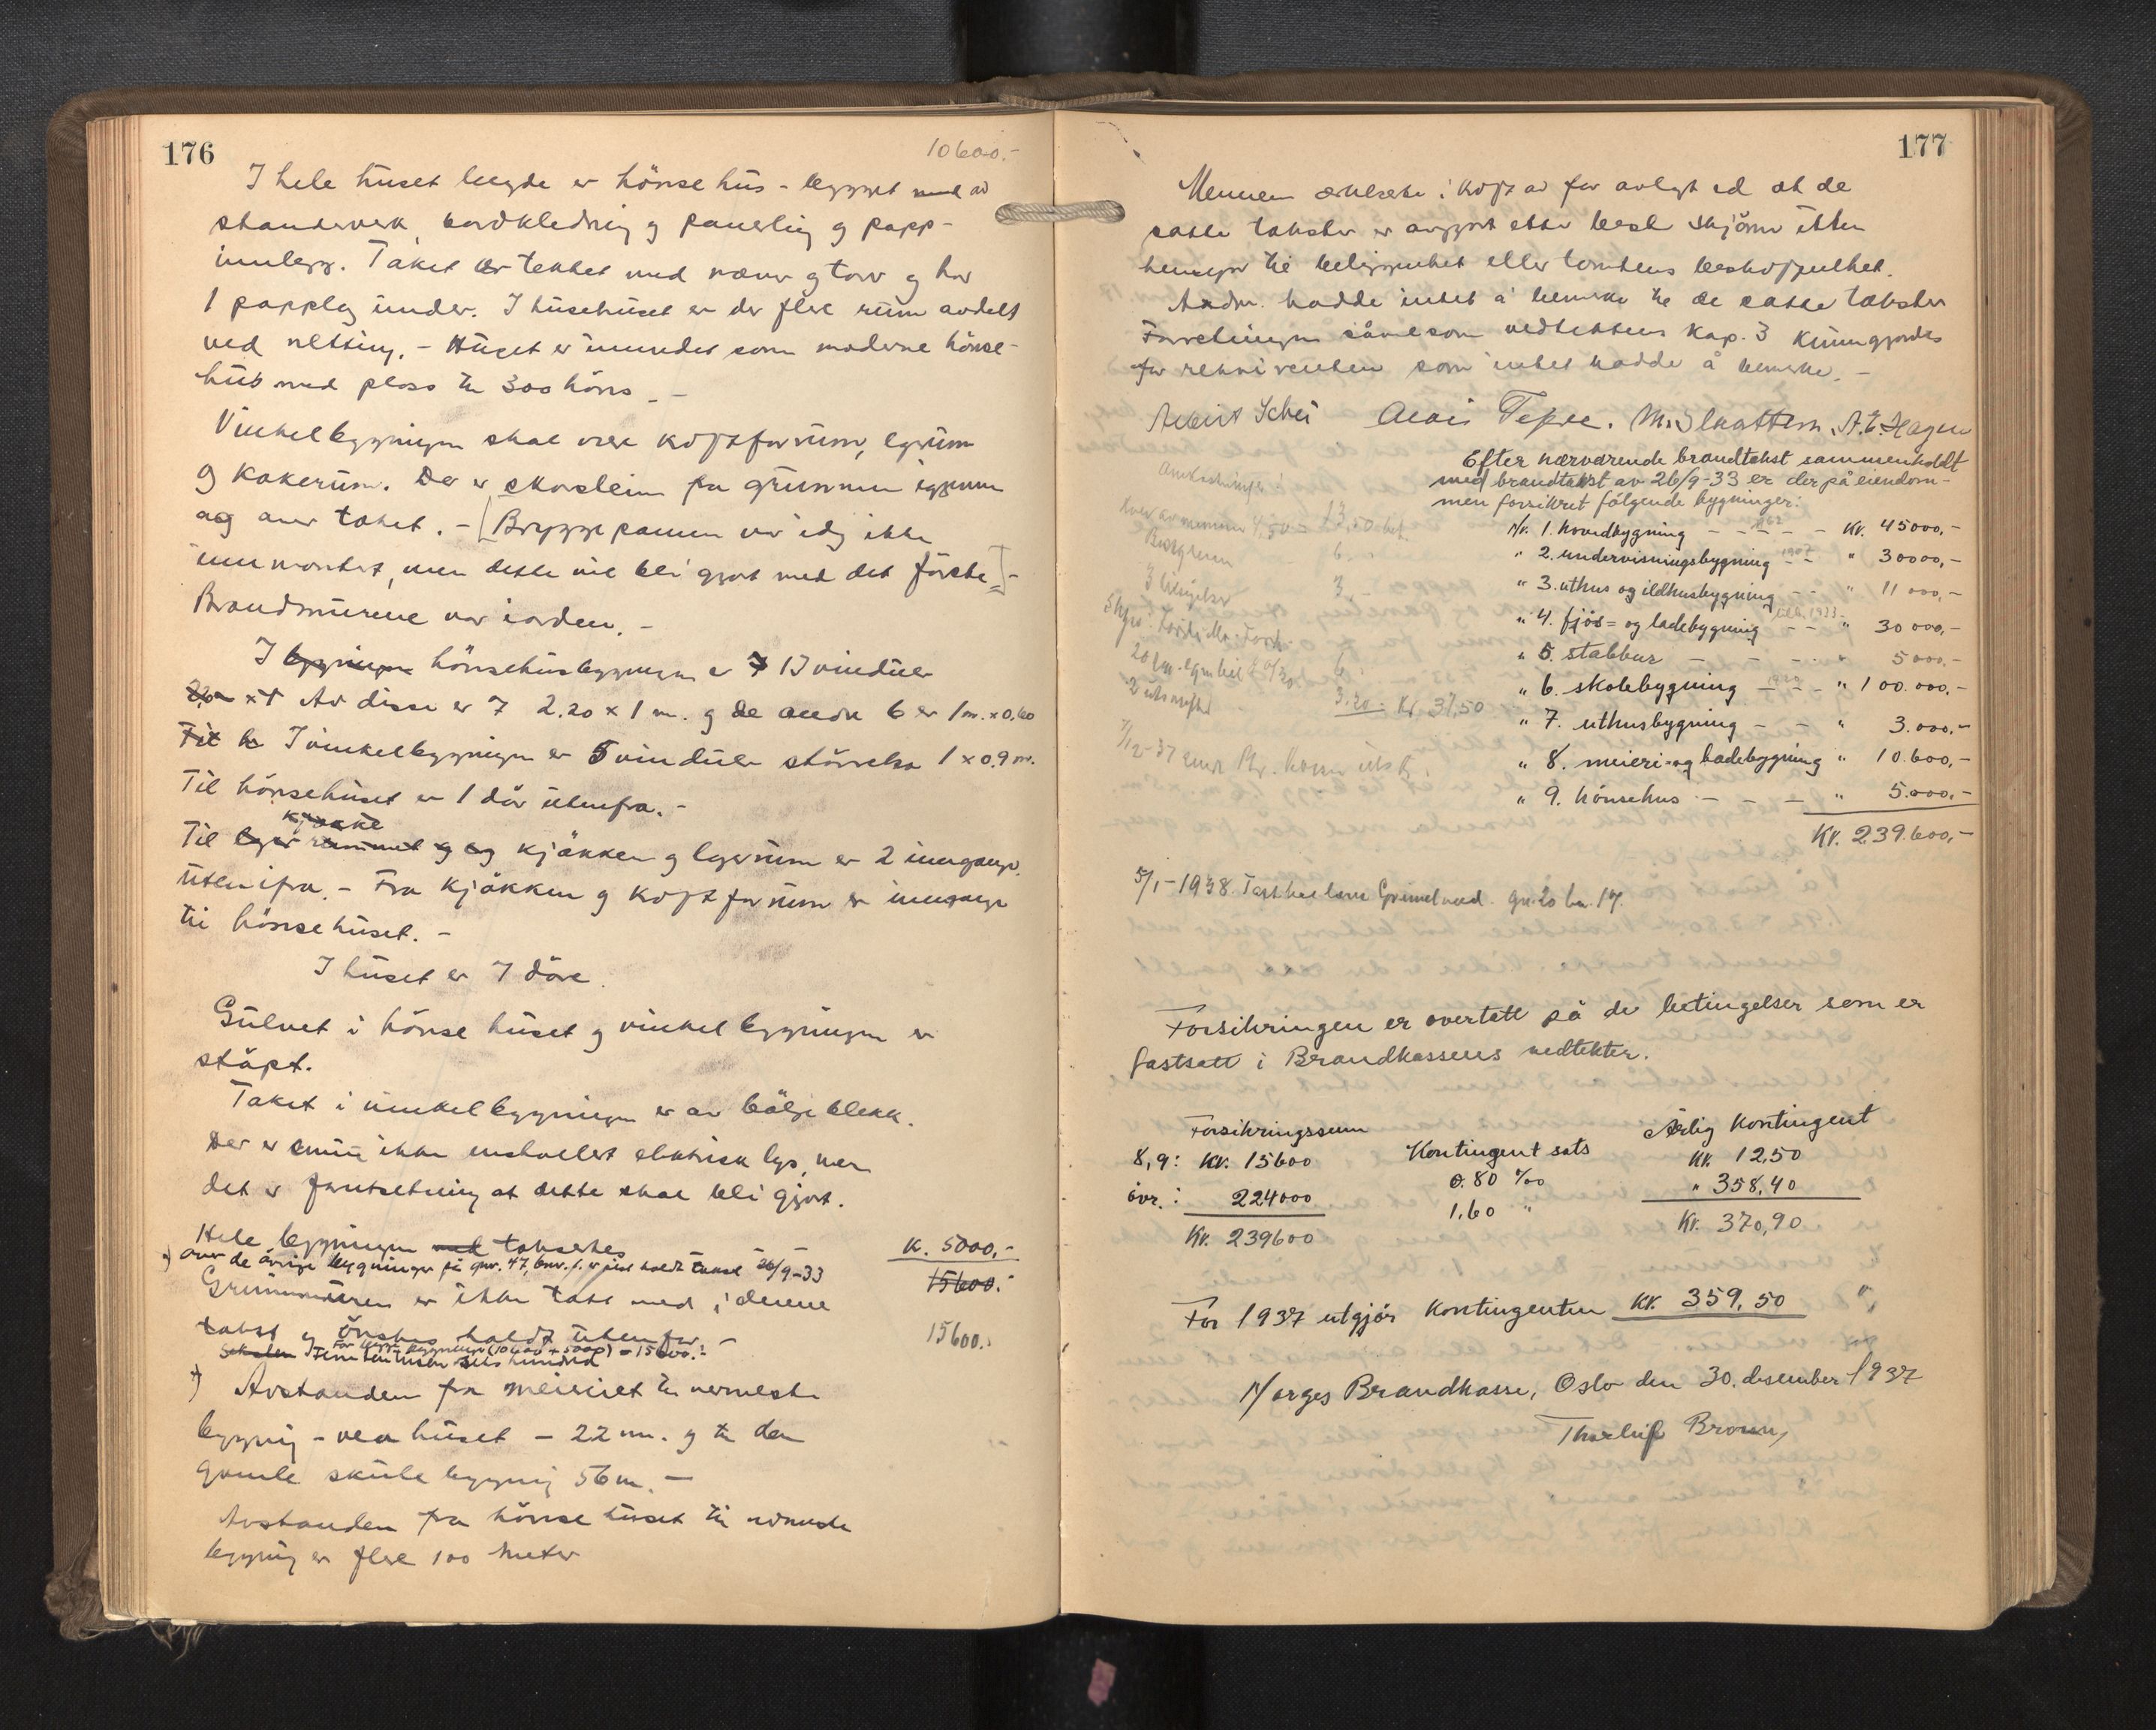 176
10600.-
I hele huset lengde er hönsehus - bygget med av
standerverk, bordkledning og panerling og papp-
innlegg. Taket er tekket med næver og torv og har
1 papplag under. I hüsehuset er der flere rum avdelt
ved netting. - Huset er innredet som moderne hönse-
hus med plass til 300 höns. -
Vinkelbygningen skal være rum, lagrum
og kokerum. Der er skorstein fra grunnen igjennem
og over taket. - [Bryggepannen var idag ikke
innmontert, men dette vil bli gjort med det förste.] -
Brandmurene var iorden. -
I bygningen hönsehusbygningen er 7 13 vinduer
Av disse er 7 2.20 x 1 m. og de andre 6 er 1 m. x 0,60
I vinkelbygningen er 5 vinduer störrelse 1 x 0.9 m.
Til hönsehuset er 1 dör utenfra. -
Til lager rummet og kjökken og lagerrum er 2 innganger
utenifra. - Fra kjökken og rum er inngange
til hönsehuset. -
I huset er 7 döre.
Gulvet i hönsehuset og vinkelbygningen er
stöpt.
Taket i vinkelbygningen er av bölgeblekk.
Der er ennu ikke installert elektrisk lys, men
det er forutsetning at dette skal bli gjort.
Hele bygningen med takseres K. 5000,-
x) over de övrige bygninger på gnr. 47, bnr. 1. er sist holdt takst 26/9-33
15600.-
Grunnmuren er ikke tatt med i denne
takst og önskes holdt utenfor. - 15600.-
For begge bygninger (10600 + 5000) = 15600.-
Femtentusen seks hundred
x) Avstanden fra meieriet til nermeste
bygning - vea huset - 22 m. og til den
gamle skule bygning 56 m. -
Avstanden fra hönsehuset til nermeste
bygning er flere 100 meter
177
Mennene erklærte i av før avlagt ed at de
satte takster er avgjort etter beste skjönn uten
hensyn til beliggenhet eller tomtens beskaffenhet.
Andre hadde intet å bemerke til de satte takster
Forretningen såvelsom vedtektens kap. 3 kunngjordes
for rekvirenten som intet hadde å bemerke. -
A. E. Hagen
Efter nærværende brandtakst sammenholdt
med brandtakst av 26/9-33 er der på eiendom-
men forsikret fölgende bygninger:
Nr. 1. hovedbygning - - - - kr. 45000,-
" 2. undervisningsbygning 1907 - " 30000,-
" 3. uthus og ildhusbygning - - " 11 000,-
" 4. fjös= og ladebygning - - " 30 000,-
" 5. stabbur - - - " 5 000.-
" 6. skolebygning - - - " 100.000,-
" 7. uthusbygning - - " 3.000,-
" 8. meieri- og badebygning " 10.600,-
" 9. hönsehus - - - " 5.000,-
Kr. 239.600,-
4,50 = 13,50
6.
3
6
3.20 : Kr. 37.50
5/1-1938. Grimelund. gn. 20 bn. 17.
Forsikringen er overtatt på de betingelser som er
fastsatt i Brandkassens vedtekter.
Forsikringssum Kontingentsats Årlig kontingent
8,9: kr. 15600 0.80 ‰ kr. 12,50
övr.: 224000 1,60 " " 358,40
Kr. 239600 Kr. 370,90
For 1937 utgjör kontingenten kr. 359,50
Norges Brandkasse, Oslo den 30. desember 1937
Thorleif Broun,